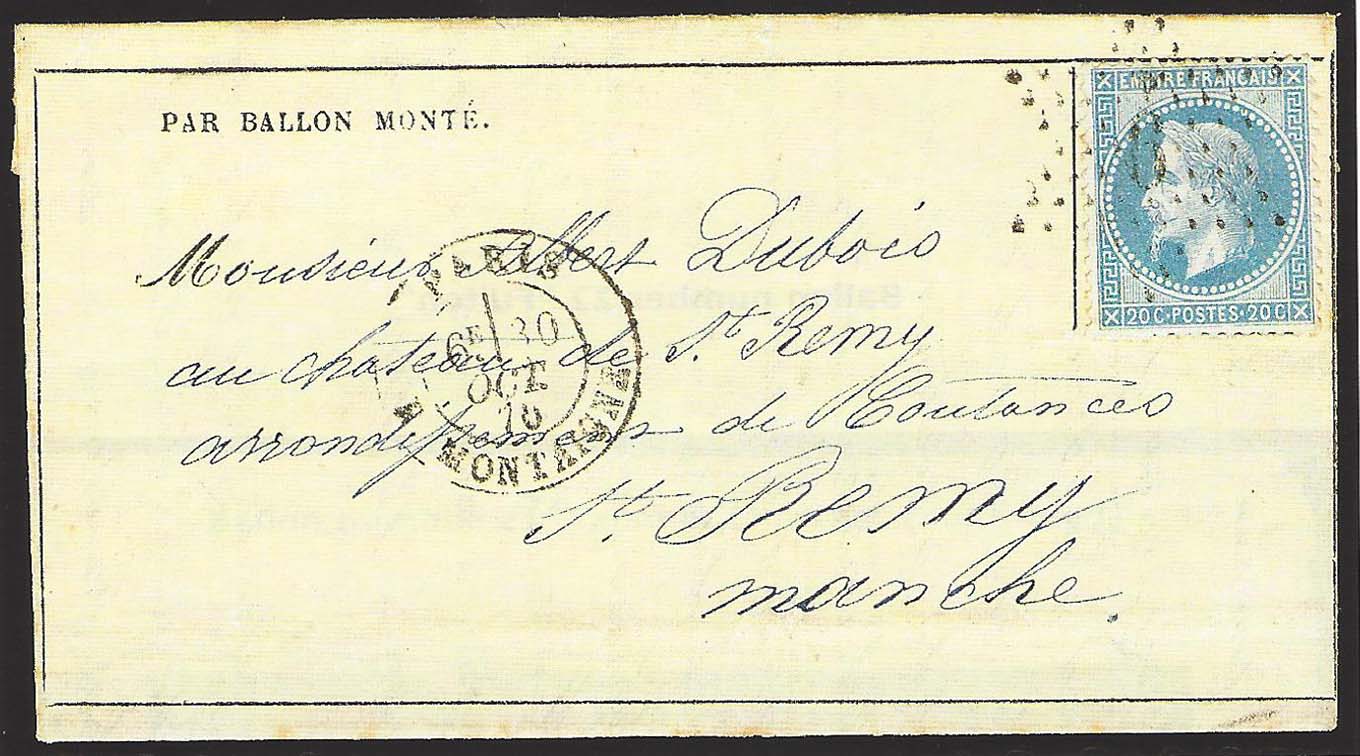 PAR BALLON MONTÉ.
EMPIRE FRANÇAIS
20 C · POSTES · 20 C
Monsieur Albert Dubois
au chateau de St. Remy
arrondissement de Coutances
St. Remy
manche.
PARIS
6E 30
OCT
70
MONTAIGNE